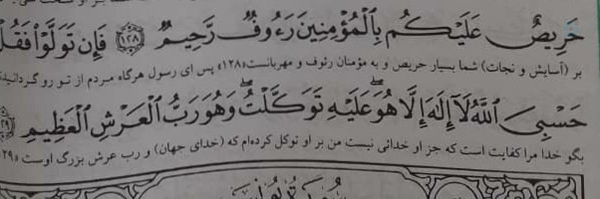 حَرِيصٌ عَلَيْكُم بِالْمُؤْمِنِينَ رَءُوفٌ رَّحِيمٌ ﴿١٢٨﴾ فَإِن تَوَلَّوْا۟ فَقُلْ
بر (آسایش و نجات) شما بسیار حریص و به مؤمنان رئوف و مهربانست «۱۲۸» پس ای رسول هرگاه مردم از تو رو گردانیدند
حَسْبِىَ ٱللَّهُ لَآ إِلَٰهَ إِلَّا هُوَ ۖ عَلَيْهِ تَوَكَّلْتُ ۖ وَهُوَ رَبُّ ٱلْعَرْشِ ٱلْعَظِيمِ
بگو خدا مرا کفایت است که جز او خدائی نیست من بر او توکل کرده‌ام که (خدای جهان) و رب عرش بزرگ اوست «۱۲۹»